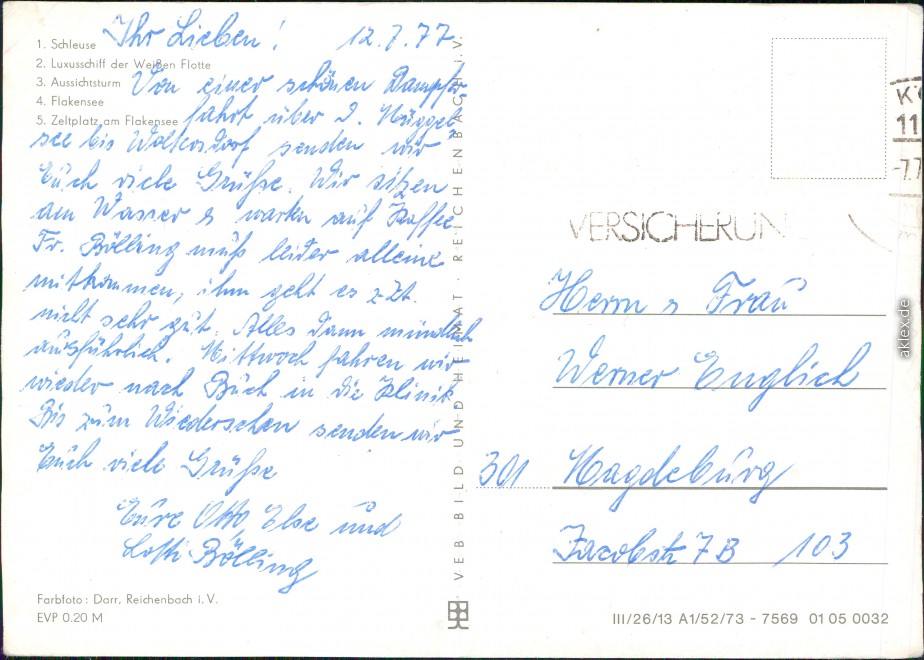 1. Schleuse
2. Luxusschiff der Weißen Flotte
3. Aussichtsturm
4. Flakensee
5. Zeltplatz am Flakensee
Ihr Lieben! 12.7.77.
Von einer schönen Dampfer-
fahrt über d. Müggel
see bis Woltersdorf senden wir
Euch viele Grüße. Wir sitzen
am Wasser & warten auf Kaffee
Fr. Bölling muß leider alleine
mitkommen, ihm geht es z.Zt.
nicht sehr gut. Alles dann mündlich
ausführlich. Mittwoch fahren wir
wieder nach Buch in die Klinik.
Bis zum Wiedersehen senden wir
Euch viele Grüße
Eure Otto, Else und
Lotti Bölling
Farbfoto: Darr, Reichenbach i. V.
EVP 0.20 M
VEB BILD UND HEIMAT · REICHENBACH i. V.
VERSICHERUN
11
-7.7
Herrn & Frau
Werner Englich
301 Magdeburg
Jacobstr 7B 103
III/26/13 A1/52/73 - 7569 01 05 0032
aklex.de